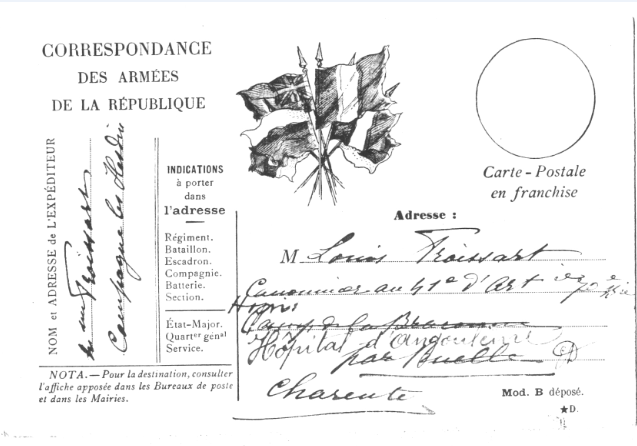 CORRESPONDANCE
DES ARMÉES
DE LA RÉPUBLIQUE
Carte - Postale
en franchise
NOM et ADRESSE de L'EXPÉDITEUR
Froissart
Campagne les Hesdin
INDICATIONS
à porter
dans
l'adresse
Régiment.
Bataillon.
Escadron.
Compagnie.
Batterie.
Section.
État-Major.
Quartr génal
Service.
NOTA. — Pour la destination, consulter
l'affiche apposée dans les Bureaux de poste
et dans les Mairies.
Adresse :
M Louis Froissart
Canonnier au 41e d'Art
Camp de la Braconne
Hôpital d'Angoulême
par Ruelle
Charente
Mod. B déposé.
★D.